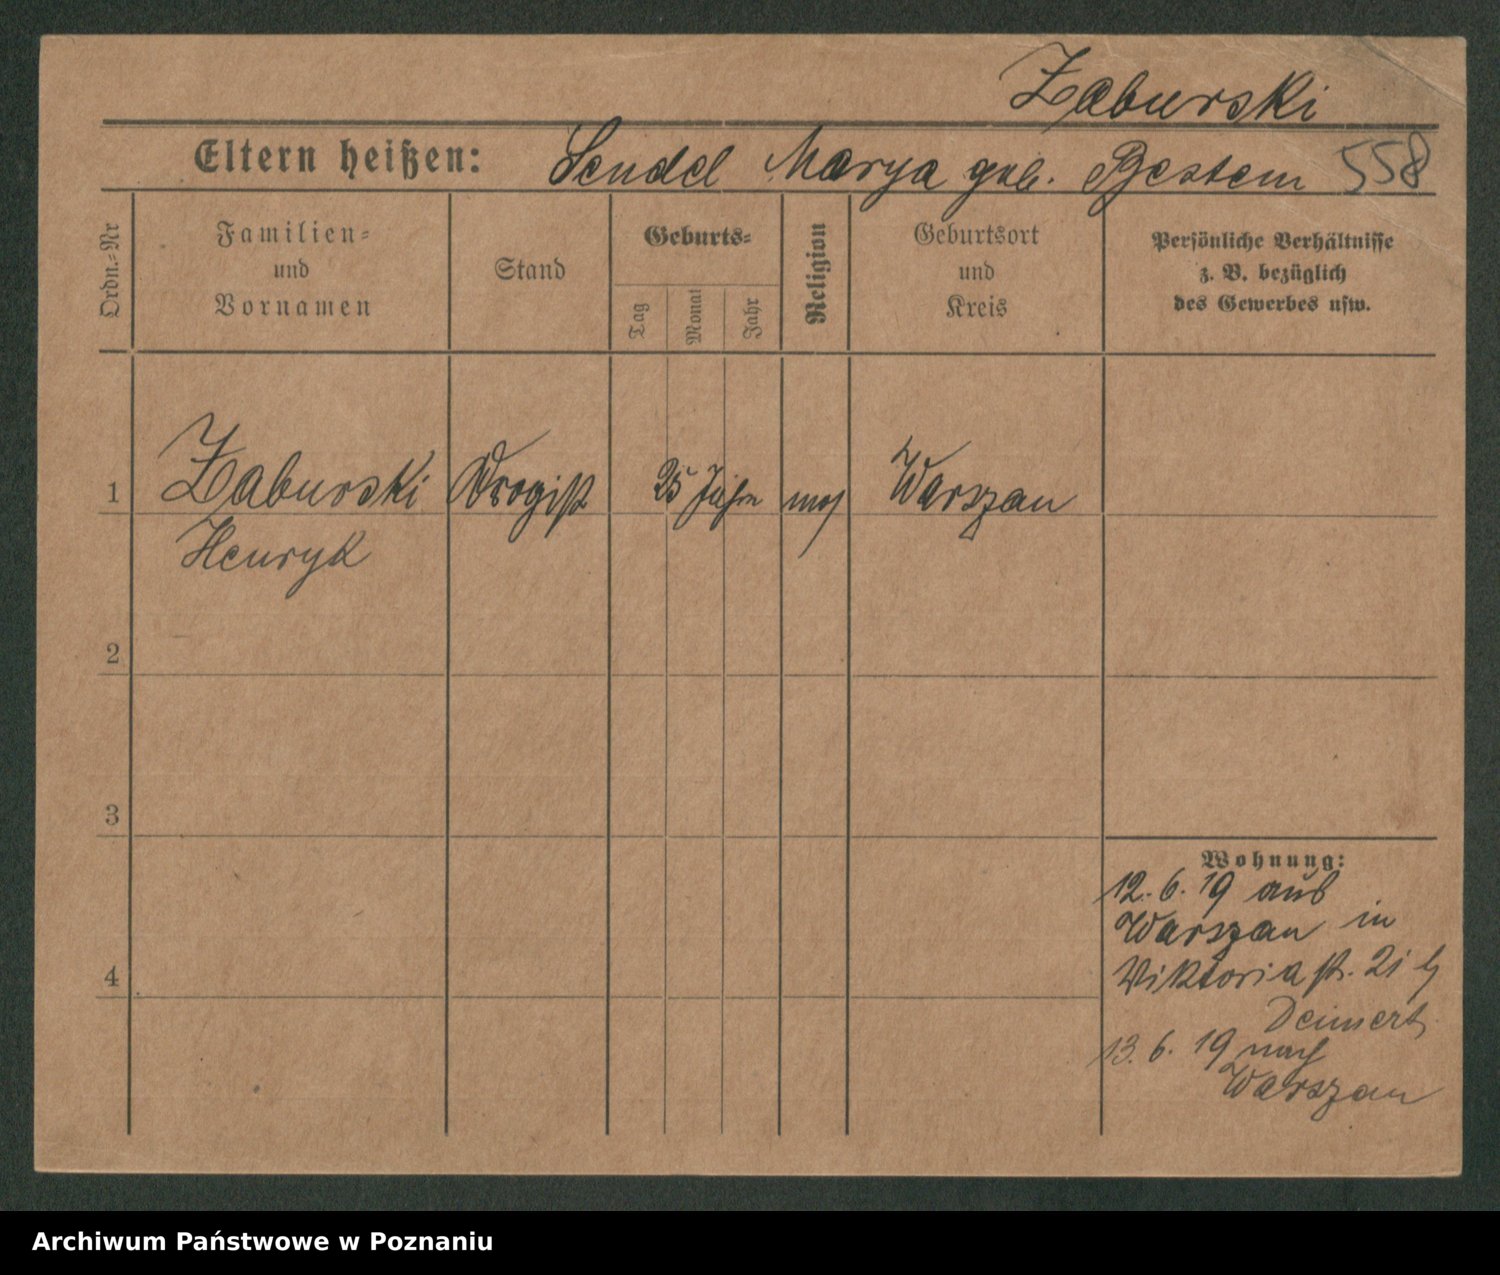 Zaburski
Eltern heißen: Sendel Marya geb. Bestem 558
Ordn.=Nr
Familien=
und
Vornamen
Stand
Geburts=
Tag
Monat
Jahr
Religion
Geburtsort
und
Kreis
Persönliche Verhältnisse
z. B. bezüglich
des Gewerbes usw.
1 Zaburski Drogist 25 Jahre mos Warszau
Henryk
2
3
4
Wohnung:
12. 6. 19 aus
Warszau in
Viktoriastr. 21 b
Deimert
13. 6. 19 nach
Warszau
Archiwum Państwowe w Poznaniu